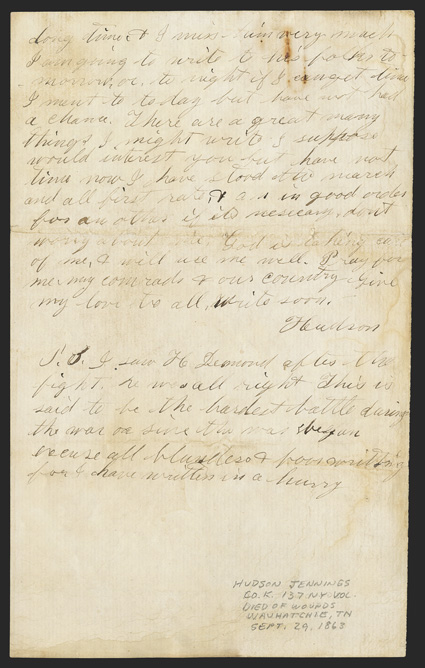 long time & I miss him very much
I am going to write to his folks to
morrow, or to night if I can get time
I ment to to day but have not had
a chance. There are a great many
things I might write I suppose
would interest you but have not
time now I have stood the march
and all first rate & am in good order
for another if it is nesicary, don't
worry about me. God is taking care
of me, & will use me well. Pray for
me, my comrads & our country. Give
my love to all, write soon.
Hudson
P.S. I saw H Demond after the
fight. he was all right This is
said to be the hardest battle during
the war or since the war began
excuse all blunders & poor writing
for I have written in a hurry
HUDSON JENNINGS
CO. K. 137 NY. VOL.
DIED OF WOUNDS
WAUHATCHIE, TN
SEPT. 29, 1863